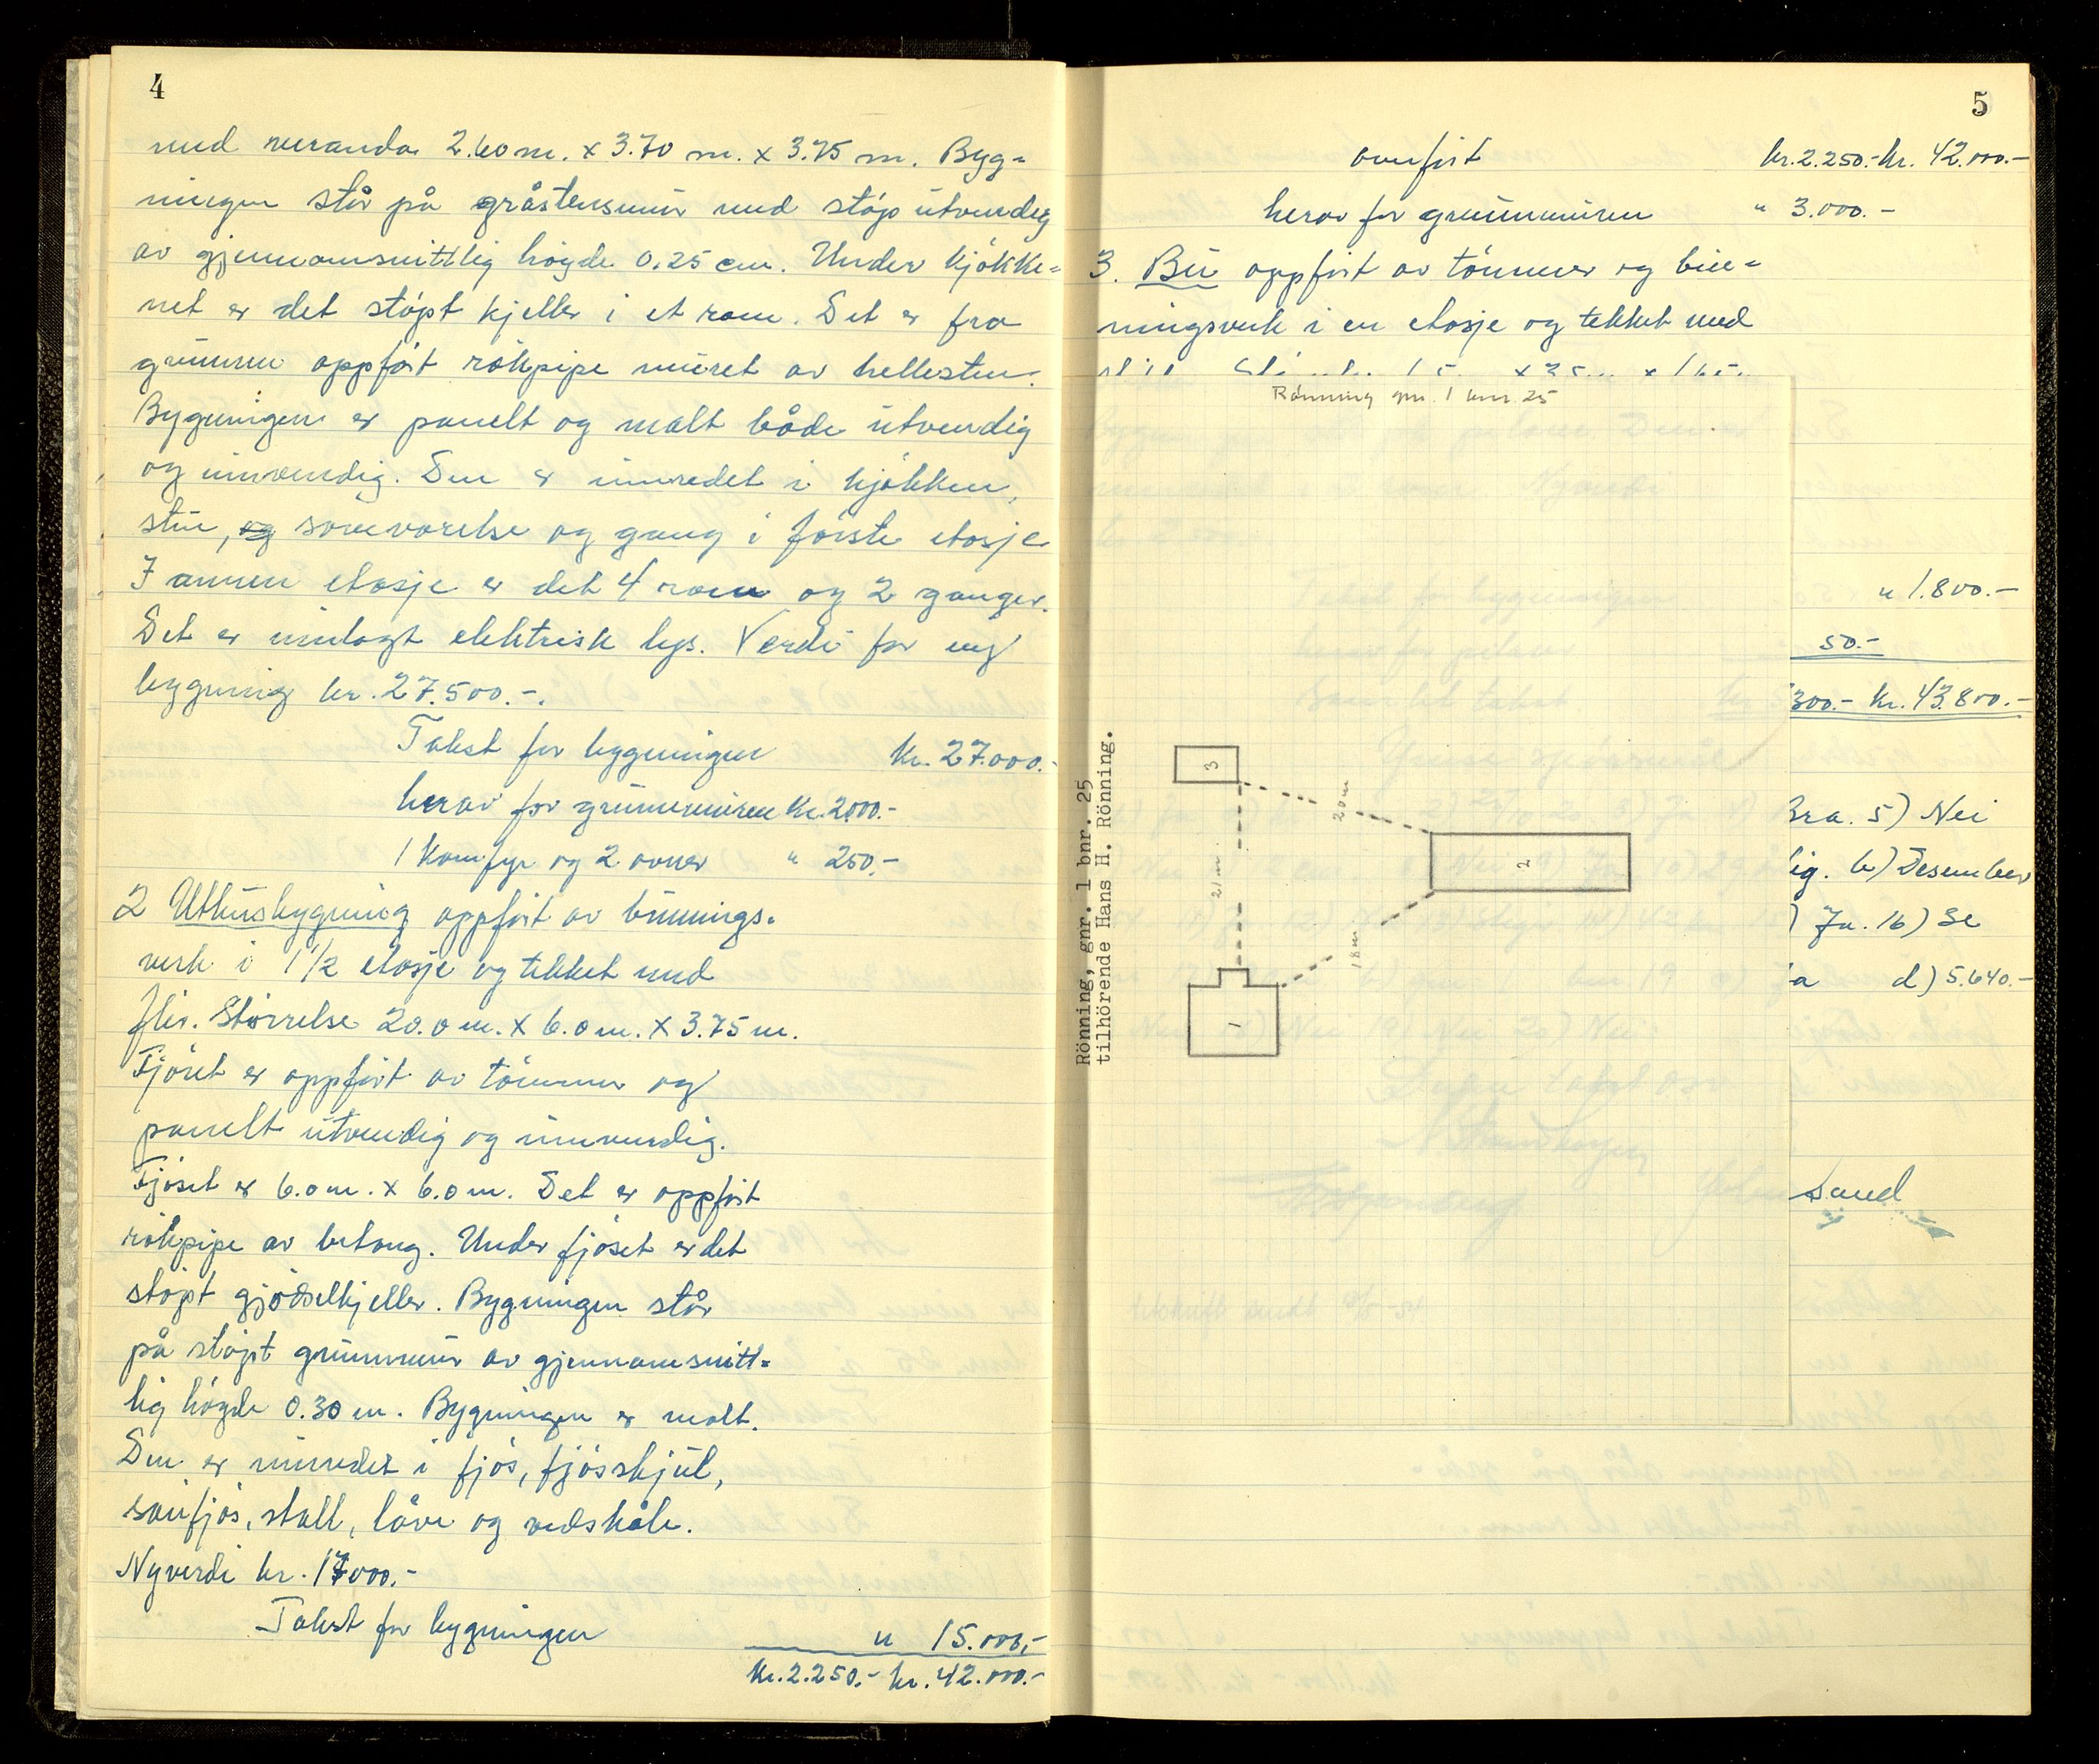 4
med veranda 2.60 m. x 3.70 m. x 3.75 m. Byg=
ningen står på gråstensmur med støp utvendig
av gjennomsnittlig høyde 0.25 cm. Under kjøkke=
net er det støpt kjeller i et rom. Det er fra
grunnen oppført rökpipe muret av hellesten.
Bygningen er panelt og malt både utvendig
og innvendig. Den er innredet i kjøkken,
stue, og soveværelse og gang i første etasje
I annen etasje er det 4 rom og 2 ganger.
Det er innlagt elektrisk lys. Verdi for ny
bygning kr. 27.500.-.
Takst for bygningen kr. 27.000.-
herav for grunnmuren Kr. 2000.-
1 Komfyr og 2 ovner " 250.-
2 Uthusbygning oppført av binnings=
verk i 1 1/2 etasje og tekket med
flis. Størrelse 20.0 m. x 6.0 m. x 3.75 m.
Fjöset er oppført av tømmer og
panelt utvendig og innvendig.
Fjöset er 6.0 m. x 6.0 m. Det er oppført
rökpipe av betong. Under fjöset er det
støpt gjødselkjeller. Bygningen står
på støpt grunnmur av gjennomsnitt=
lig høyde 0.30 m. Bygningen er malt.
Den er innredet i fjös, fjösskjul,
saufjös, stall, låve og vedskåle.
Nyverdi kr. 17000.-
Takst for bygningen " 15.000,-
Kr. 2.250.- kr. 42.000.-
5
overført kr. 2.250.- kr. 42.000.-
herav for grunnmuren " 3.000.-
3. Bu oppført av tømmer og bin=
ningsverk i en etasje og tekket med
Rönning gnr. 1 bnr. 25
" 1.800.-
50.-
300.- Kr. 43.800.-
Bra. 5) Nei
lig. 6) Desember
) Ja. 16) Se
a d) 5.640.-
sand
Rönning, gnr. 1 bnr. 25
tilhörende Hans H. Rönning.
3
20 m
2
21 m
18 m
1